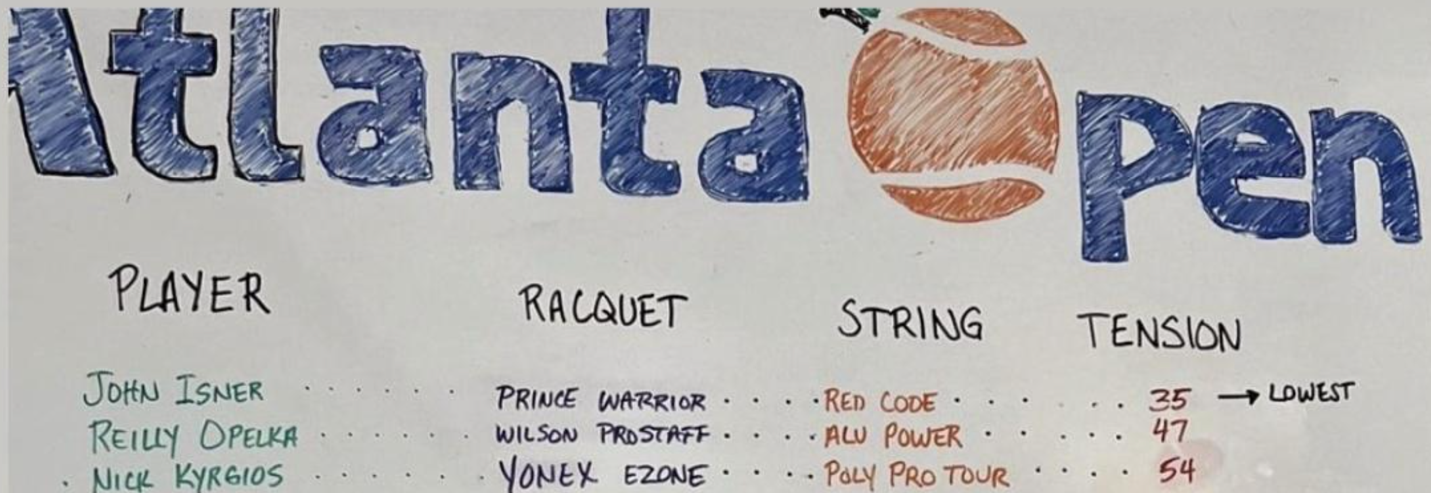 Atlanta Open
PLAYER RACQUET STRING TENSION
JOHN ISNER . . . . . . PRINCE WARRIOR . . . . . RED CODE . . . . . . . 35 → LOWEST
REILLY OPELKA . . . . . . WILSON PROSTAFF . . . . . ALU POWER . . . . . . 47
. NICK KYRGIOS . . . . . . YONEX EZONE . . . . . POLY PRO TOUR . . . . 54